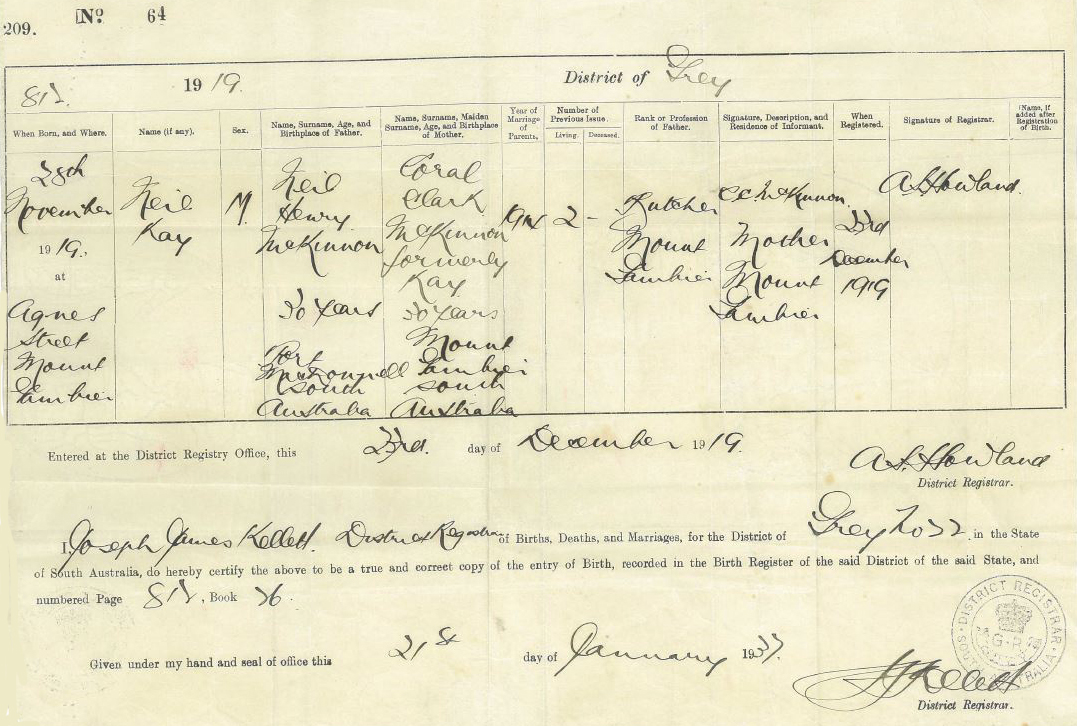 No. 64
209.
1919. District of Grey
When Born, and Where.
Name (if any).
Sex.
Name, Surname, Age, and Birthplace of Father.
Name, Surname, Maiden Surname, Age, and Birthplace of Mother.
Year of Marriage of Parents.
Number of Previous Issue.
Living. Deceased.
Rank or Profession of Father.
Signature, Description, and Residence of Informant.
When Registered.
Signature of Registrar.
(Name, if added after Registration of Birth.
28th
November
1919.,
at
Agnes
Street
Mount
Gambier
Neil
Kay
M
Neil
Henry
McKinnon
30 Years
Port
MacDonnell
South
Australia
Coral
Clark
McKinnon
formerly
Kay
30 Years
Mount
Gambier
South
Australia
1914
2 -
Butcher
Mount
Gambier
C C McKinnon
Mother
Mount
Gambier
23rd
December
1919
Howland.
Entered at the District Registry Office, this 23rd. day of December 1919.
Howland
District Registrar.
I, Joseph James Kellett. District Registrar of Births, Deaths, and Marriages, for the District of Grey in the State
of South Australia, do hereby certify the above to be a true and correct copy of the entry of Birth, recorded in the Birth Register of the said District of the said State, and
numbered Page , Book 26.
Given under my hand and seal of office this 21st day of January 1937.
DISTRICT REGISTRAR
G.R.
Kellett
District Registrar.